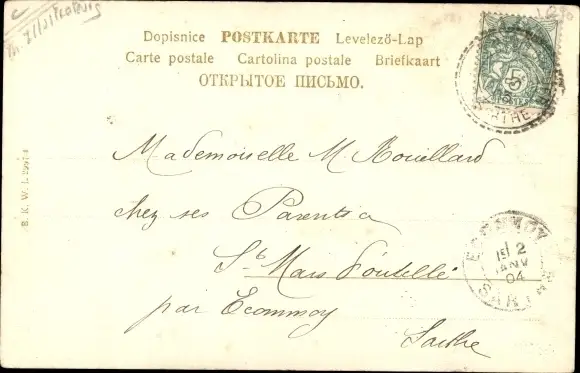 Dopisnice POSTKARTE Levelező-Lap
Carte postale Cartolina postale Briefkaart
ОТКРЫТОЕ ПИСЬМО.
5
SARTHE
Mademoiselle M. Rouillard
chez ses Parents a
St Mars d'outillé
par Ecommoy
Sarthe
ECOMMOY
2
JANV
04